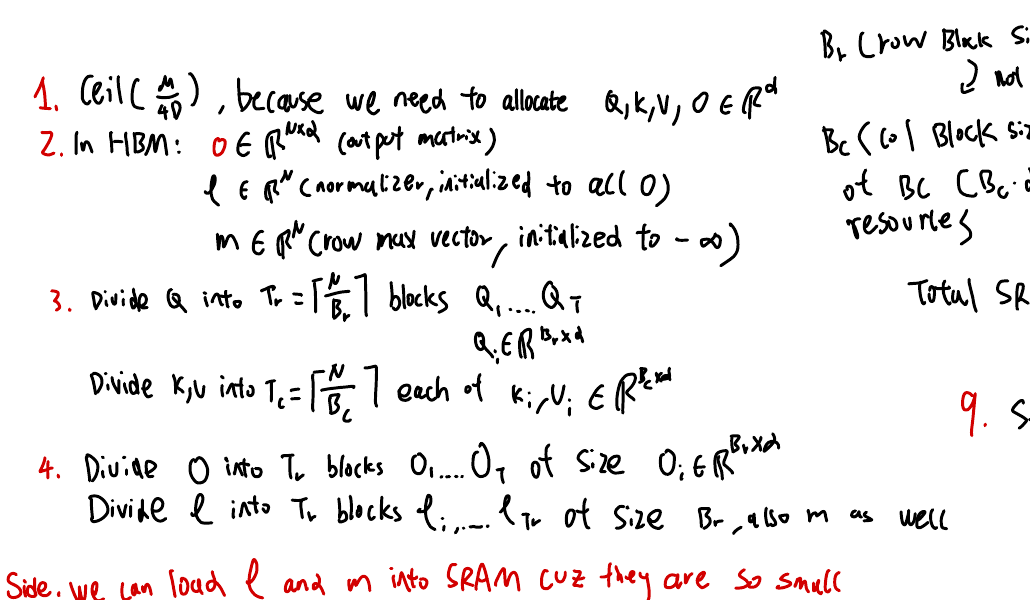 1. Ceil(M/4D), because we need to allocate Q,K,V,O ∈ ℝ^d
2. In HBM: O ∈ ℝ^{N×d} (output matrix)
ℓ ∈ ℝ^N (normalizer, initialized to all 0)
m ∈ ℝ^N (row max vector, initialized to -∞)
3. Divide Q into Tr = ⌈N/Br⌉ blocks Q_1....Q_T
Q_i ∈ ℝ^{Br×d}
Divide K,V into T_c = ⌈N/B_c⌉ each of K_i, V_i ∈ ℝ^{Bc×d}
4. Divide O into Tr blocks O_1....O_T of size O_i ∈ ℝ^{Br×d}
Divide ℓ into Tr blocks ℓ_i,.... ℓ_Tr of size Br, also m as well
Side. We can load ℓ and m into SRAM cuz they are so small
Br (row Block Si
not
Bc (col Block siz
of BC (Bc.
resources
Total SR
9. S